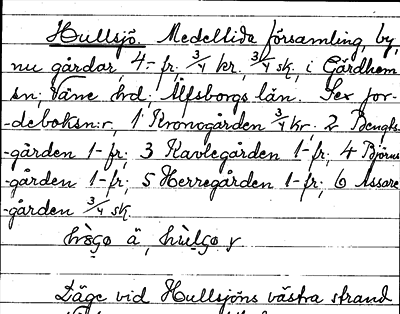 Hullsjö. Medeltida församling, by,
nu gårdar, 4 - fr, 3/4 kr, 3/4 sk, i Gärdhem
sn, Väne hd, Älfsborgs län. Sex jor-
-deboksn:r, 1 Kronogården 3/4 kr, 2 Bengts-
-gården 1 - fr, 3 Kavlegården 1 - fr, 4 Björns
-gården 1 - fr, 5 Herregården 1 - fr, 6 Assare
-gården 3/4 sk.
Läge vid Hullsjöns västra strand